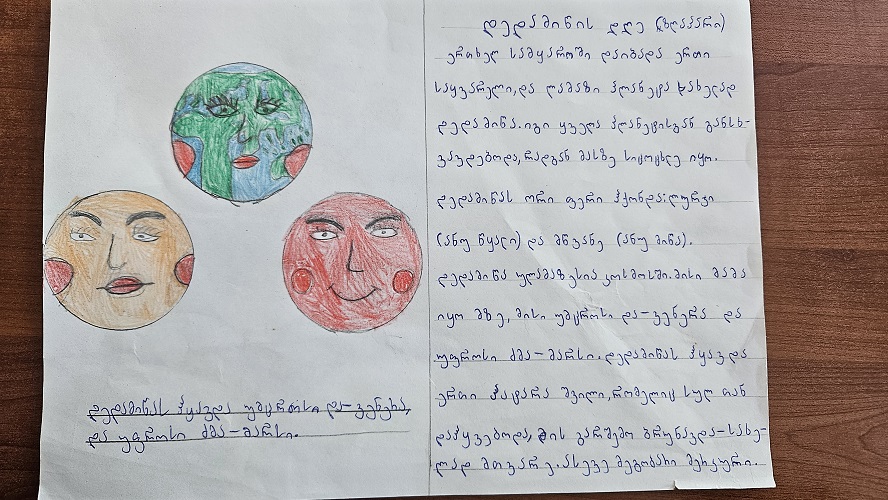 დედამიწას ჰყავდა უმცროსი და-ვენერა,
და უფროსი ძმა-მარსი.
დედამიწის დღე (ზღაპარი)
ერთხელ სამყაროში დაიბადა ერთი
საყვარელი, და ლამაზი პლანეტა სახელად
დედამიწა. იგი ყველა პლანეტისგან განსხ-
ვავდებოდა, რადგან მასზე სიცოცხლე იყო.
დედამიწას ორი ფერი ჰქონდა: ლურჯი
(ანუ წყალი) და მწვანე (ანუ მიწა).
დედამიწა ულამაზესია კოსმოსში. მისი მამა
იყო მზე, მისი უმცროსი და-ვენერა და
უფროსი ძმა-მარსი. დედამიწას ჰყავდა
ერთი პატარა შვილი, რომელიც სულ თან
დაჰყვებოდა, მის გარშემო ბრუნავდა-სახე-
ლად მთვარე. ასევე მეგობარი მერკური.